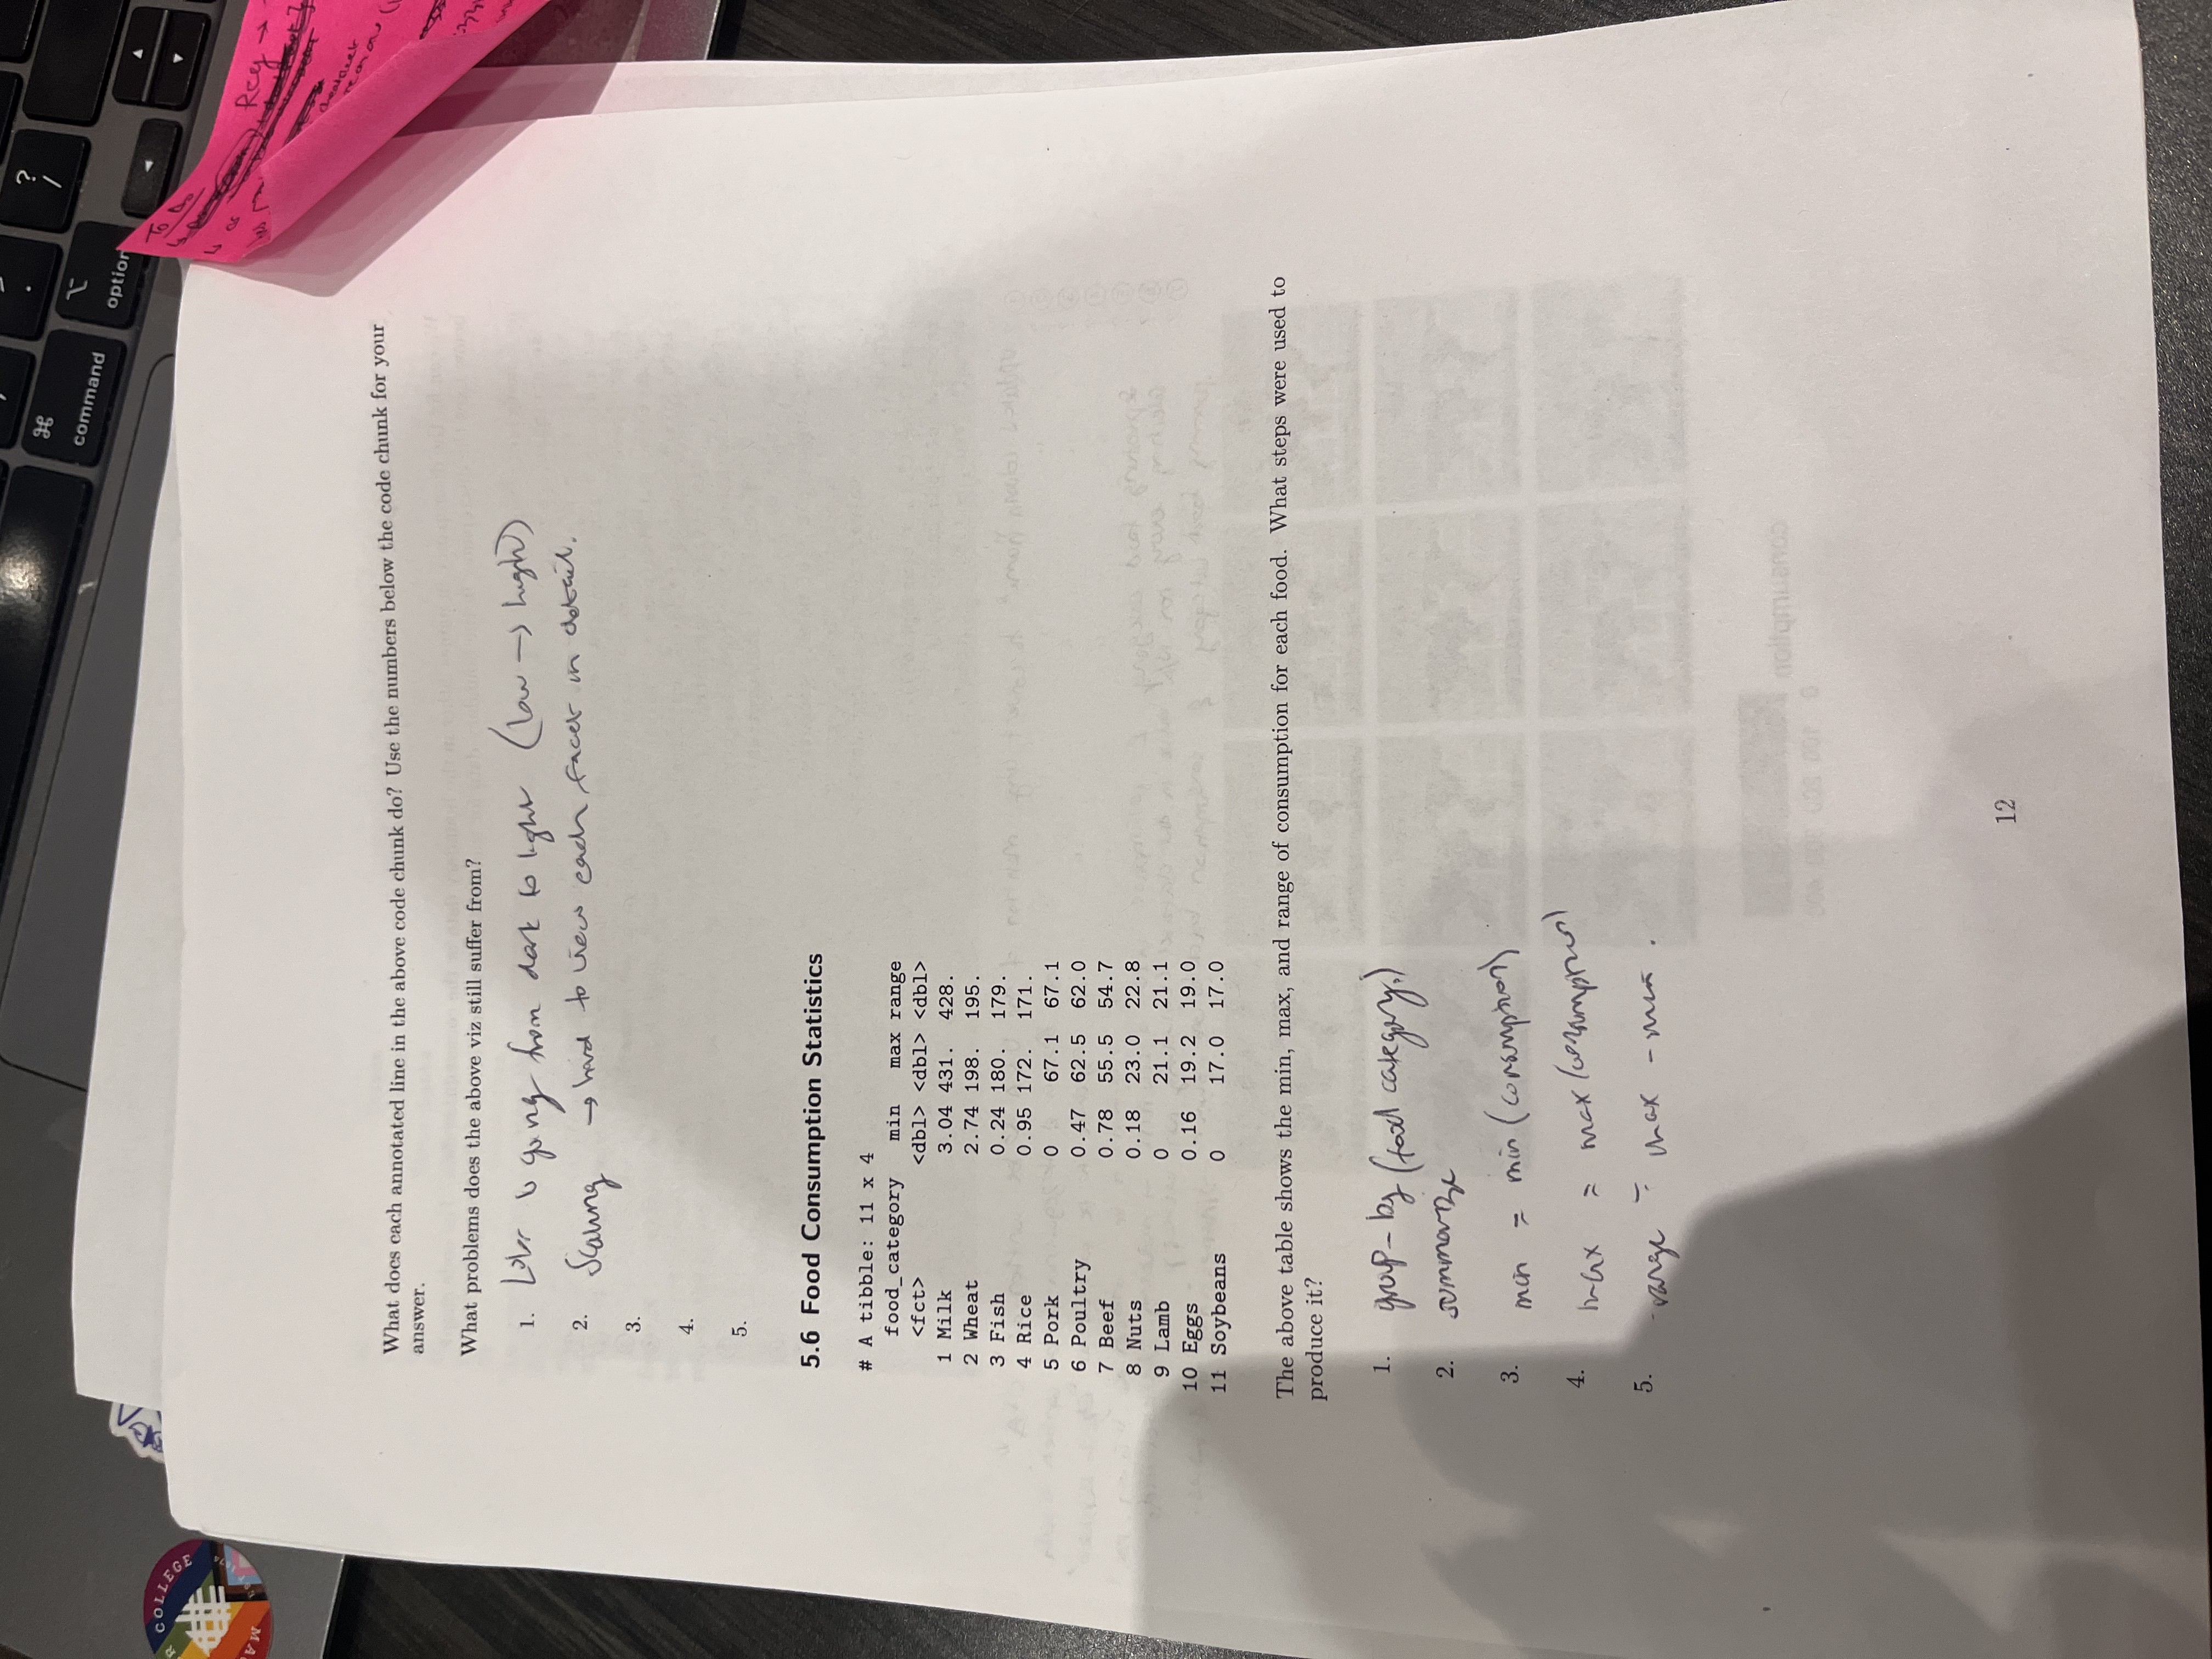 COLLEGE
EST 1874
⌘
command
⌥
option
?
/
◄
▲
▼
To Do
Rcg →
What does each annotated line in the above code chunk do? Use the numbers below the code chunk for your
answer.
What problems does the above viz still suffer from?
1. going from dark to light (low → high)
2. Scaling → hard to view each facet in detail.
3.
4.
5.
5.6 Food Consumption Statistics
# A tibble: 11 x 4
food_category min max range
<fct> <dbl> <dbl> <dbl>
1 Milk 3.04 431. 428.
2 Wheat 2.74 198. 195.
3 Fish 0.24 180. 179.
4 Rice 0.95 172. 171.
5 Pork 0 67.1 67.1
6 Poultry 0.47 62.5 62.0
7 Beef 0.78 55.5 54.7
8 Nuts 0.18 23.0 22.8
9 Lamb 0 21.1 21.1
10 Eggs 0.16 19.2 19.0
11 Soybeans 0 17.0 17.0
The above table shows the min, max, and range of consumption for each food. What steps were used to
produce it?
1. group_by (food category)
2. summarize
3. min = min (consumption)
4. max = max (consumption)
5. range = max - min.
consumption
0 100 200 300 400
12